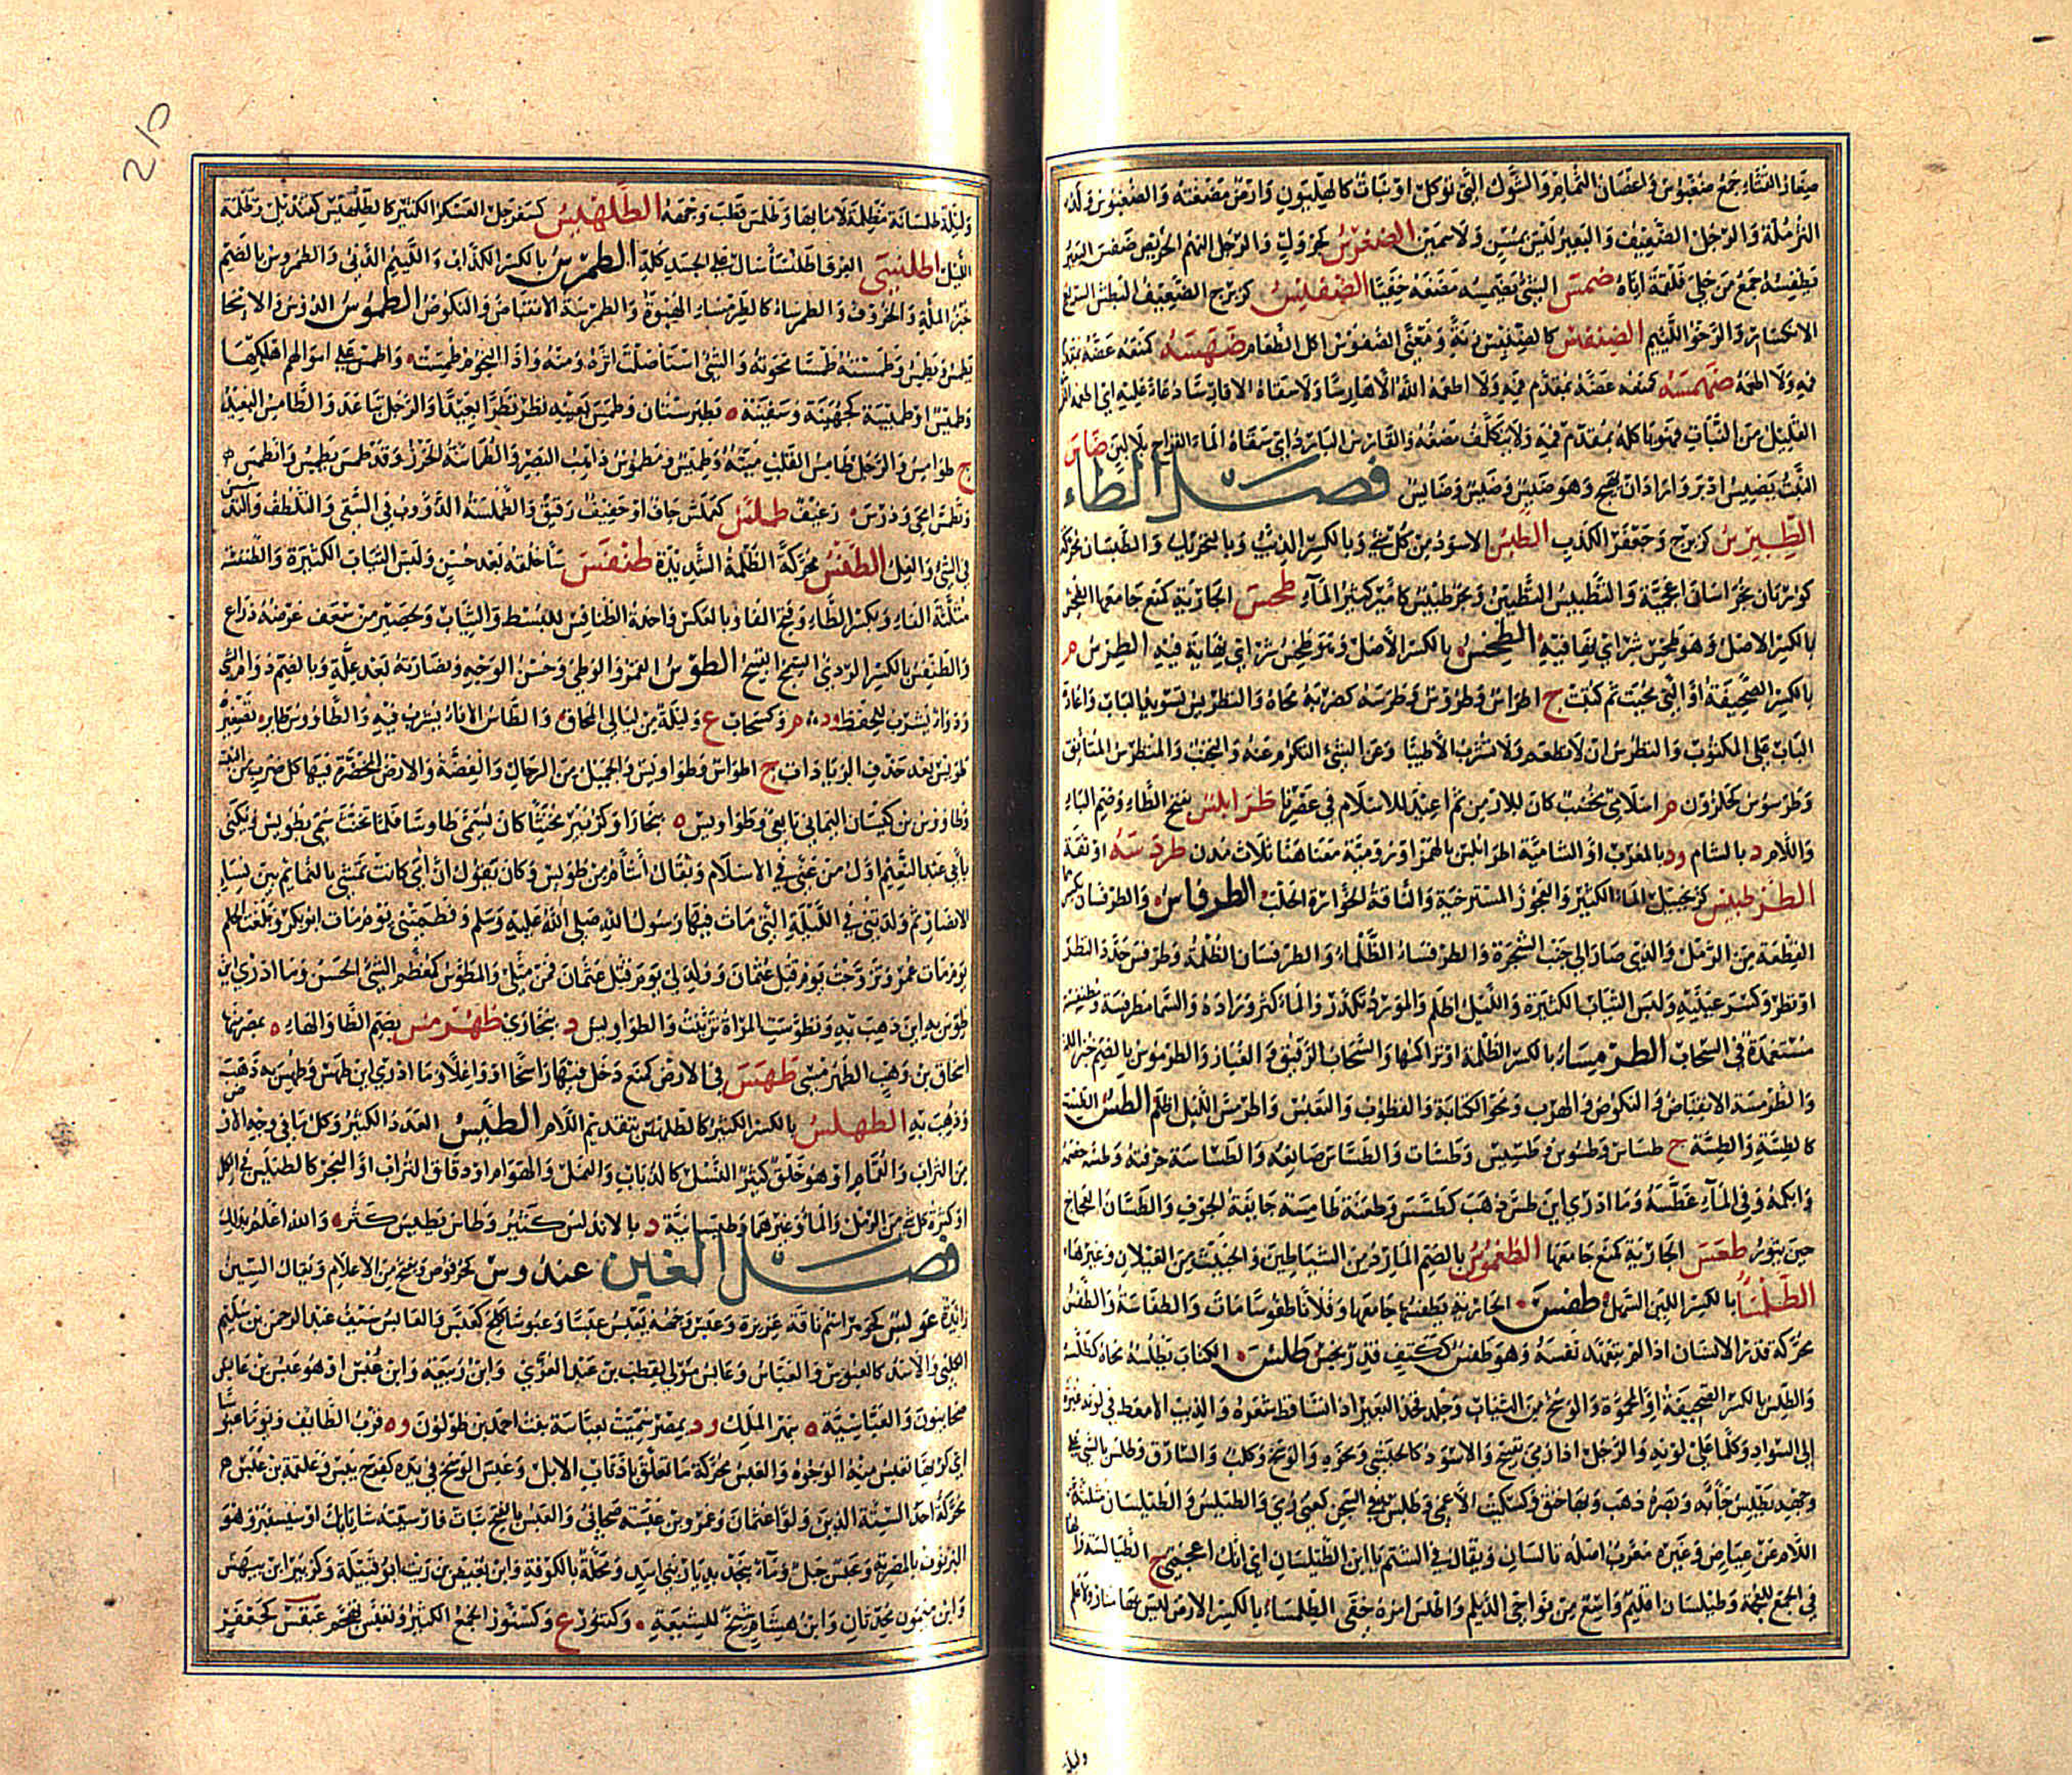 صغار القثاء جمع ضغبوس واغصان الثمام والشوك التي توكل او نبات كالهليون وارض مضغبة والضغبوس ولد
الثرملة والرجل الضعيف والبعير ليس بمسن ولا سمين الضغرس كجرول والرجل النهم الحريص ضفس البعير
يضفسه جمع من حلي فلقمه اياه ضمس الشئ يضمسه مضغه خفيا الضنفس كزبرج الضعيف البطش السريع
الانكسار والرخو اللئيم الضنفس كالضنبس زنة ومعنى الضوس اكل الطعام ضهسه كمنعه عضه بمقدم
فيه ولا اطعمه الله الا ضاهسا ولا سقاه الا قارسا دعاء عليه اي اطعمه النزر
القليل من النبات فهو ياكله بمقدم فيه ولا يتكلف مضغه والقارس البارد اي سقاه الماء القراح بلا لبن ضاس
النبت يضيس ادبر واراد ان يهيج وهو ضيس وضيس وضايس فصل الطاء
الطبرس كزبرج وجعفر الكذاب الطبس الاسود من كل شئ وبالكسر الذئب وبالتحريك والطبسان محركة
كورتان بخراسان اعجمية والتطبيس التطيين وبحر طبيس كامير كثير الماء طحس الجارية كمنع جامعها الطحس
بالكسر الاصل وهو طخس شر اي نهاية فيه الطرس
بالكسر الصحيفة او التي محيت ثم كتبت ج اطراس وطروس وطرسه كضربه محاه والتطريس تسويد الباب واعادة
الكتاب على المكتوب والتطرس ان لا تطعم ولا تشرب الا طيبا وعن الشئ التكرم عنه والتجنب والمتطرس المتانق
وطرسوس كحلزون م اسلامي مخصب كان للارمن ثم اعيد للاسلام في عصرنا طرابلس بفتح الطاء وضم الباء
واللام د بالشام ود بالمغرب او الشامية اطرابلس بالهمز او رومية معناها ثلاث مدن طردسه اوثقه
الطرطبيس كزنجبيل الماء الكثير والعجوز المسترخية والناقة الخوارة الحلب الطرفاس والطرفسان بكسرهما
القطعة من الرمل والذي صار الى جنب الشجرة والطرفساء الظلماء والطرفسان الظلمة وطرفس حدد النظر
او نظر وكسر عينيه ولبس الثياب الكثيرة والليل اظلم والمورد تكدر والماء كثر وراده والسماء مطرفسة
مستغمدة في السحاب الطرمساء بالكسر الظلمة او تراكمها والسحاب الرقيق والغبار والطرموس بالضم خبز الملة
والطرمسة الانقباض والنكوص والهرب ومحو الكتابة والقطوب والتعبس واطرمس الليل اظلم الطس الطست
كالطسة والطسة ج طساس وطسوس وطسيس وطسات والطساس صانعه والطساسة حرفته وطسه خصمه
وابكمه وفي الماء غطسه وما ادري اين طس ذهب كطسس وطعنة طاسة جائفة الجوف والطسان العجاج
حين يثور طعس الجارية كمنع جامعها الطغموس بالضم المارد من الشياطين والخبيث من الغيلان وغيرها
بالكسر اللين السهل طفس الجارية يطفسها جامعها وفلان طفوسا مات والطفاسة والطفس
محركة قذر الانسان اذا لم يتعهد نفسه وهو طفس ككتف قذر نجس طلس الكتاب يطلسه محاه كطلسه
والطلس بالكسر الصحيفة او الممحوة والوسخ من الثياب وجلد فخذ البعير اذا تساقط شعره والذئب الامعط في لونه غبرة
الى السواد وكل ما على لونه والرجل اذا رمي بقبيح والاسود كالحبشي ونحوه والوسخ وكلب والسارق وطلس بالشئ على
وجهه يطلس جاء به وبصره ذهب وبها حبق وكسكيت الاعمى وطلس به في السجن كعني رمي والطيلس والطيلسان مثلثة
اللام عن عياض وغيره معرب اصله تالسان ويقال في الشتم يا ابن الطيلسان اي انك اعجمي ج الطيالسة والهاء
في الجمع للعجمة وطيلسان اقليم واسع من نواحي الديلم واطلس امره خفي الطلمساء بالكسر الارض ليس بها منار ولا علم
وليلة
وليلة طلمسانة مظلمة لا منار بها وطلمس قطب وجهه الطلهيس كسفرجل العسكر الكثير كالطلهيس كقنديل وظلمة
الليل اطلنسى العرق اطلنساء سال على الجسد كله الطمرس بالكسر الكذاب واللئيم الدنئ والطمروس بالضم
خبز الملة والخروف والطمرساء كالطرمساء الهبوة والطمرسة الانقباض والنكوص الطموس الدروس والامحاء
يطمس ويطمس وطمسته طمسا محوته والشئ استاصلت اثره ومنه واذا النجوم طمست واطمس على اموالهم اهلكها
وطميس او طميسة كجهينة وسفينة د بطبرستان وطمس بعينه نظر نظرا بعيدا والرجل تباعد والطامس البعيد
ج طوامس والرجل طامس القلب ميته وطميس ومطموس ذاهب البصر والطماسة الحزر وقد طمس يطمس وانطمس
وتطمس امحى ودرس رغيف طملس كعملس جاف او خفيف رقيق والطملسة الدؤوب في السعي والتلطف والتدسس
في الشئ والغل الطنس محركة الظلمة الشديدة طنفس ساء خلقه بعد حسن ولبس الثياب الكثيرة والطنفسة
مثلثة الفاء وبكسر الطاء وفتح الفاء وبالعكس واحدة الطنافس للبسط والثياب ولحصير من سعف عرضه ذراع
والطنفس بالكسر الردئ السمج القبيح الطوس القمر والوطئ وحسن الوجه ونضارته بعد علة وبالضم د وام الشئ
ودواء يشرب للحفظ ود م وكسحاب ع وليلة من ليالي المحاق والطاس الاناء يشرب فيه والطاووس طاير تصغيره
طويس بعد حذف الزيادات ج اطواس وطواويس والجميل من الرجال والفضة والارض المخضرة فيها كل ضرب من النبت
وطاووس بن كيسان اليماني تابعي وطواويس ه ببخارا وكزبير مخنث كان يسمى طاوسا فلما تخنث سمي بطويس ويكنى
بابي عبد النعيم اول من غنى في الاسلام ويقال اشام من طويس وكان يقول ان امي كانت تمشي بالنمائم بين نساء
الانصار ثم ولدتني في الليلة التي مات فيها رسول الله صلى الله عليه وسلم وفطمتني يوم مات ابو بكر وبلغت الحلم
يوم مات عمر وتزوجت يوم قتل عثمان وولد لي يوم قتل عثمان فمن مثلي والمطوس كمعظم الشئ الحسن وما ادري اين
طوس به اين ذهب به وتطوست المراة تزينت والطواويس د ببخارى طهرمس بضم الطاء والهاء ه بمصر منها
اسحاق بن وهب الطهرمسي طهس في الارض كمنع دخل فيها راسخا او واغلا وما ادري اين طهس وطهس به ذهب
وذهب به الطهلس بالكسر الكثير كالطلهيس بتقديم اللام الطيس العدد الكثير وكل ما في وجه الارض
من التراب والقمام او هو خلق كثير النسل كالذباب والنمل والهوام او دقاق التراب او البحر كالطيسل في الكل
او كثرة كل شئ من الرمل والماء وغيرهما وطيسانية د بالاندلس كثير وطاس يطيس كثر والله اعلم بذلك
فصل العين عبدوس كحرقوص ويفتح من الاعلام ويقال السين
زايدة عبوس كجرول اسم ناقة غزيرة وعبس وجهه يعبس عبسا وعبوسا كلح كعبس والعابس سيف عبد الرحمن بن سليم
الكلبي والاسد كالعبوس والعباس وعابس مولى حويطب بن عبد العزى وابن ربيعة وابن عبس او هو عبس بن عابس
صحابيون والعباسية ه بنهر الملك ود بمصر سميت بعباسة بنت احمد بن طولون وه قرب الطائف ويوما عبوسا
اي كريها تعبس منه الوجوه والعبس محركة ما تعلق باذناب الابل وعبس الوسخ في يده كفرح يبس وعلقمة بن عبس م
محركة احد الستة الذين ولوا عثمان وعمرو بن عبسة صحابي والعبس بالفتح نبات فارسيته شابابك او سيسنبر وهو
البرنوف بالمصرية وعبس جبل وماء بنجد بديار بني اسد ومحلة بالكوفة وابن بغيض بن ريث ابو قبيلة وكزبير ابن بيهس
وابن ميمون محدثان وابن هشام شيخ للشيعة وكتنور ع وكسنور الجمع الكثير وتعبس تجهم عبقس كجعفر